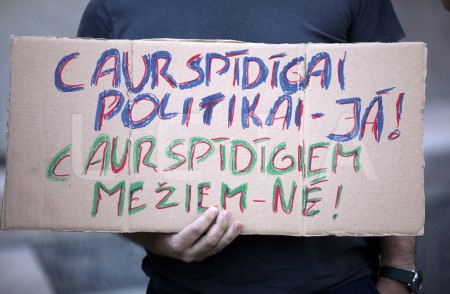 CAURSPĪDĪGAI
POLITIKAI-JĀ!
CAURSPĪDĪGIEM
MEŽIEM-NĒ!